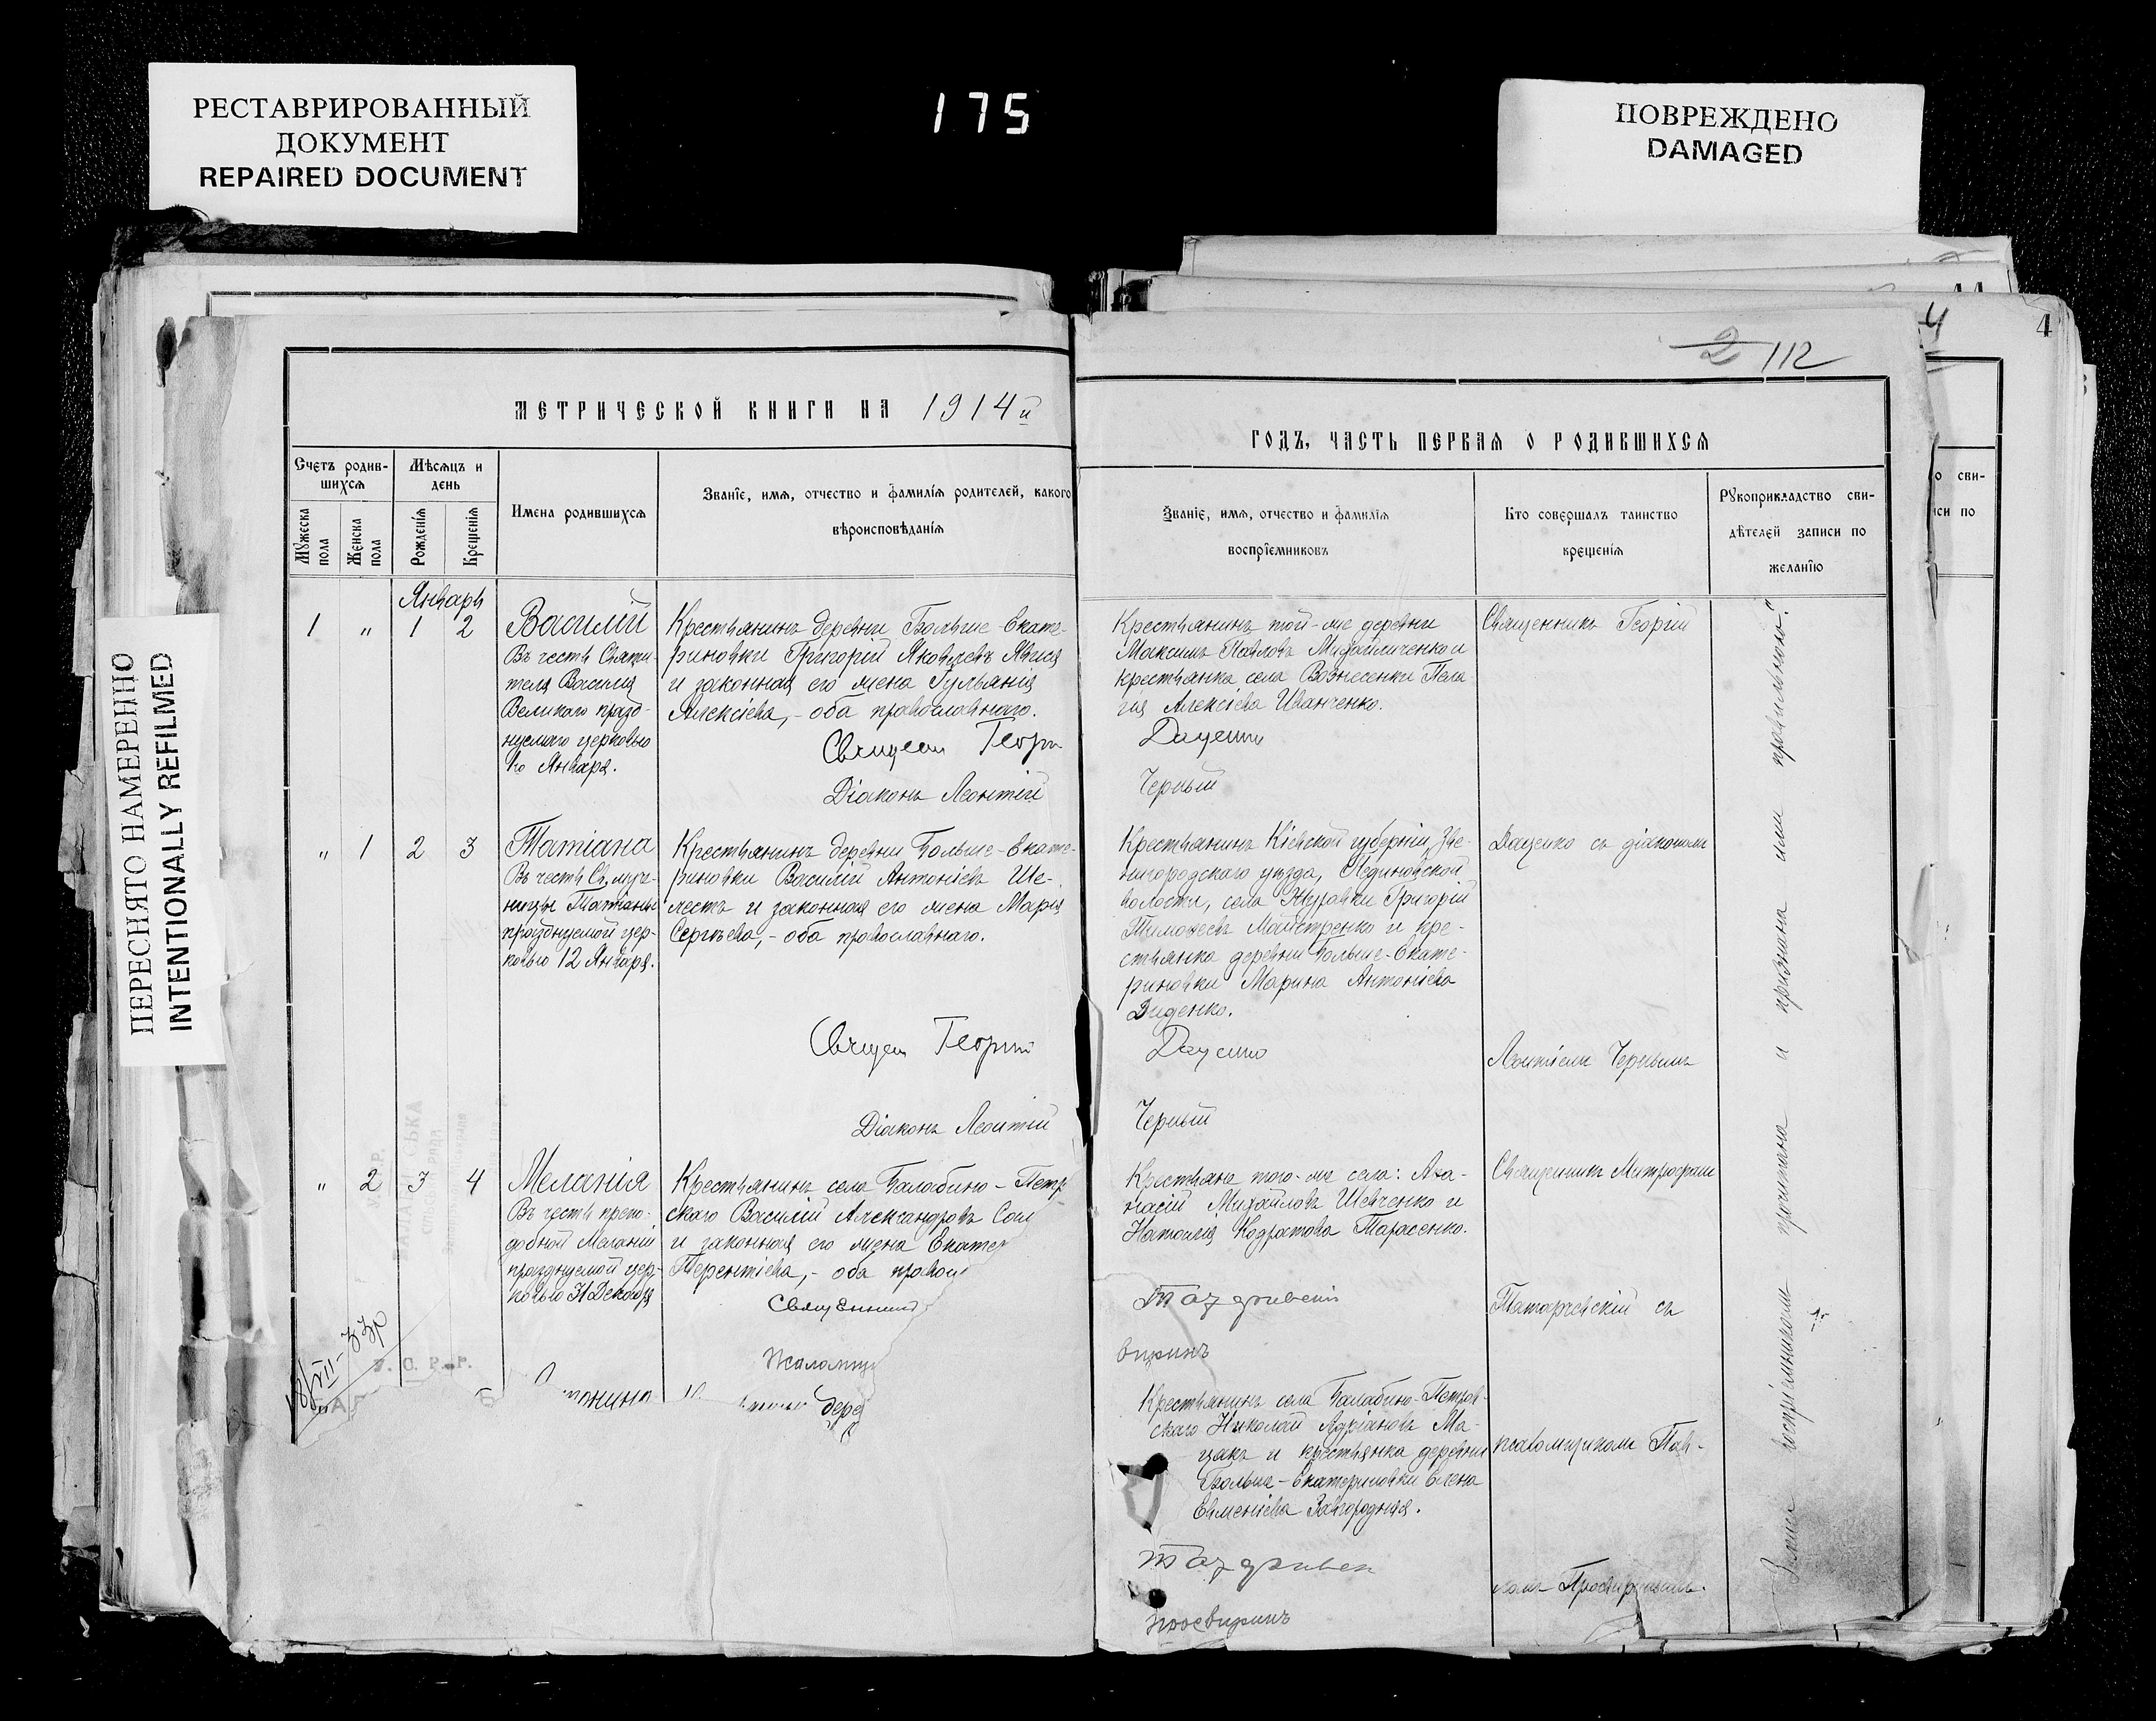 РЕСТАВРИРОВАННЫЙ
ДОКУМЕНТ
REPAIRED DOCUMENT
175
ПОВРЕЖДЕНО
DAMAGED
ПЕРЕСНЯТО НАМЕРЕННО
INTENTIONALLY REFILMED
4
4
2 112
МЕТРИЧЕСКОЙ КНИГИ НА 1914 й
ГОДЪ, ЧАСТЬ ПЕРВАЯ О РОДИВШИХСЯ
Счетъ родив-
шихся
Мужеска
пола
Женска
пола
Мѣсяцъ и
день
Рожденія
Крещенія
Имена родившихся
Званіе, имя, отчество и фамилія родителей, какого
вѣроисповѣданія
Званіе, имя, отчество и фамилія
воспріемниковъ
Кто совершалъ таинство
крещенія
Рукоприкладство сви-
дѣтелей записи по
желанію
о сви-
иси по
Январь
1 " 1 2
Василій
Въ честь Святи-
теля Василія
Великаго празд-
нуемаго церковью
1го Января.
Крестьянинъ деревни Больше-Екате-
риновки Григорій Яковлевъ
и законная его жена Іуліанія
Алексіева,- оба православнаго.
Священ Георгій
Діаконъ Леонтій
Крестьянинъ той-же деревни
Максимъ Павловъ Михайличенко и
крестьянка села Вознесенки Пела-
гія Алексіева Иванченко.
Даценко
Черный
Священникъ Георгій
" 1 2 3
Татіана
Въ честь Св. муче-
ницы Татіаны
празднуемой цер-
ковью 12 Января.
Крестьянинъ деревни Больше-Екате-
риновки Василій Антоніевъ Ше-
лестъ и законная его жена Марія
Сергѣева,- оба православнаго.
Священ Георгій
Діаконъ Леонтій
Крестьянинъ Кіевской губерніи, Зве-
нигородскаго уѣзда,
волости, села Григорій
Тимоѳеевъ Майстренко и кре-
стьянка деревни Больше-Екате-
риновки Марина Антоніева
Диденко.
Даценко
Черный
Даценко съ діакономъ
Леонтіемъ Чернымъ
" 2 3 4
Меланія
Въ честь препо-
добной Меланіи
празднуемой цер-
ковью 31 Декабря
Крестьянинъ села Балабино-Петр
скаго Василій Александровъ
и законная его жена Екатер
Терентіева,- оба правосл
Священникъ
Псаломщ
Крестьяне того-же села: Аѳа-
насій Михайловъ Шевченко и
Наталія Кодратова Тарасенко.
виринъ
Священникъ Митрофанъ
съ
У.С.Р.Р.
дере
Крестьянинъ села Балабино-Петров-
скаго Николай Адріановъ Ма-
цакъ и крестьянка деревни
Больше-Екатериновки Елена
Евменіева Загородняя.
Просвиринъ
псаломщикомъ Пав-
ломъ Просвиринымъ.
Запись воспріемниками прочитана и признана ими правильною.